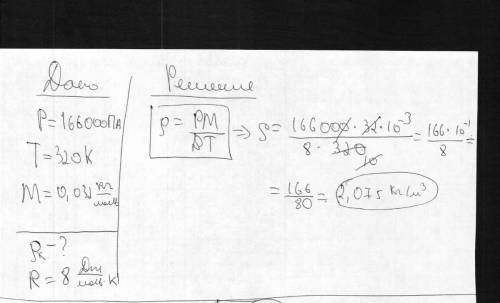 Дано
P=166000Па
T=320К
M=0,032 кг/моль
ρк-?
R=8 Дж/моль·К
Решение
ρ = PM/RT => ρ = 166000·32·10⁻³/8·320 = 166·10⁻¹/8 =
10
= 166/80 = 2,075 кг/м³